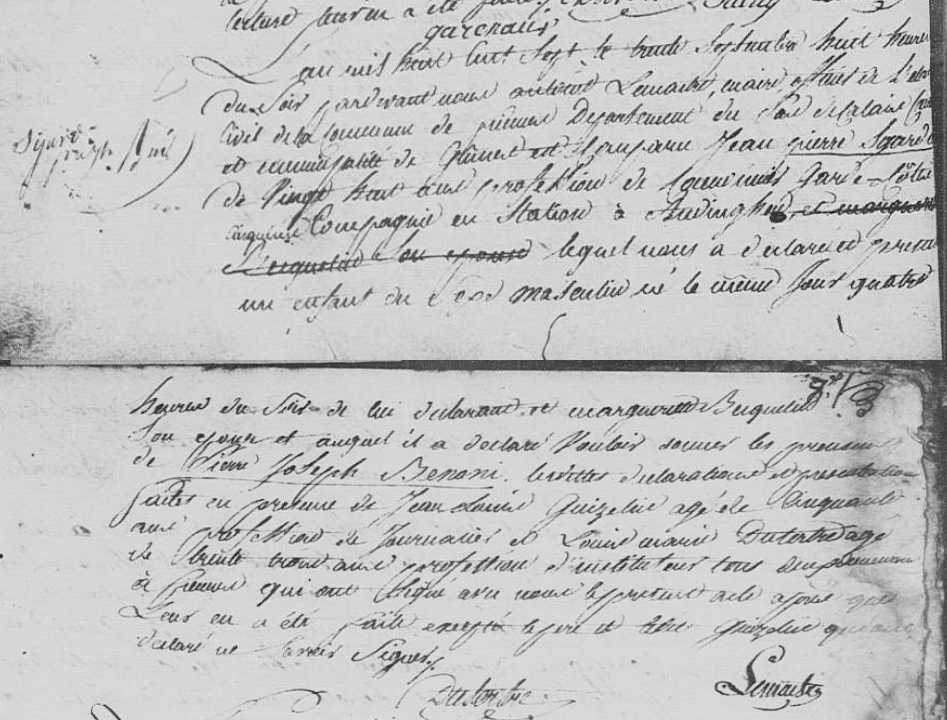 lecture
garenaux
L'an mil huit cent sept le trente Septembre huit heures
du Soir pardevant nous antoine Lemaitre, maire, officier de L'etat
Civil de la Commune de Département du Pas de Calais
et municipalité de est Comparu Jean pierre Sgard
Sgard
de Vingt huit ans profession de Canonnier Garde-Côtes
Compagnie en Station à Audinghen et marguerite
Becquelin Son epouse lequel nous a declaré et presenté
un enfant du Sexe masculin né le même Jour quatre
heures du Soir de lui declarant et marguerite Becquelin
Son epouse et auquel il a declaré Vouloir donner les prenoms
de Pierre Joseph Benoni. lesdites declarations et presentation
faites en presence de Jean Louis Guizelin agé de Cinquante
ans profession de Journalier et Louis marie Dutertre agé
de trente trois ans profession d'instituteur tous deux
à qui ont Signé avec nous le present acte après que
Lecture en a été faite excepté le pere et ledit Guizelin qui ont
declaré ne Savoir Signer.
Dutertre
Lemaitre